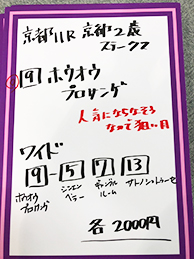 京都11R 京都2歳
ステークス
① 9 ホウオウ
プロサンゲ
人気にならなそう
なので狙い目
ワイド
9-5 7 13
ホウオウ
プロサンゲ
シンエン
ペラー
ギャンブル
ルーム
サトノシュトラーセ
各2000円